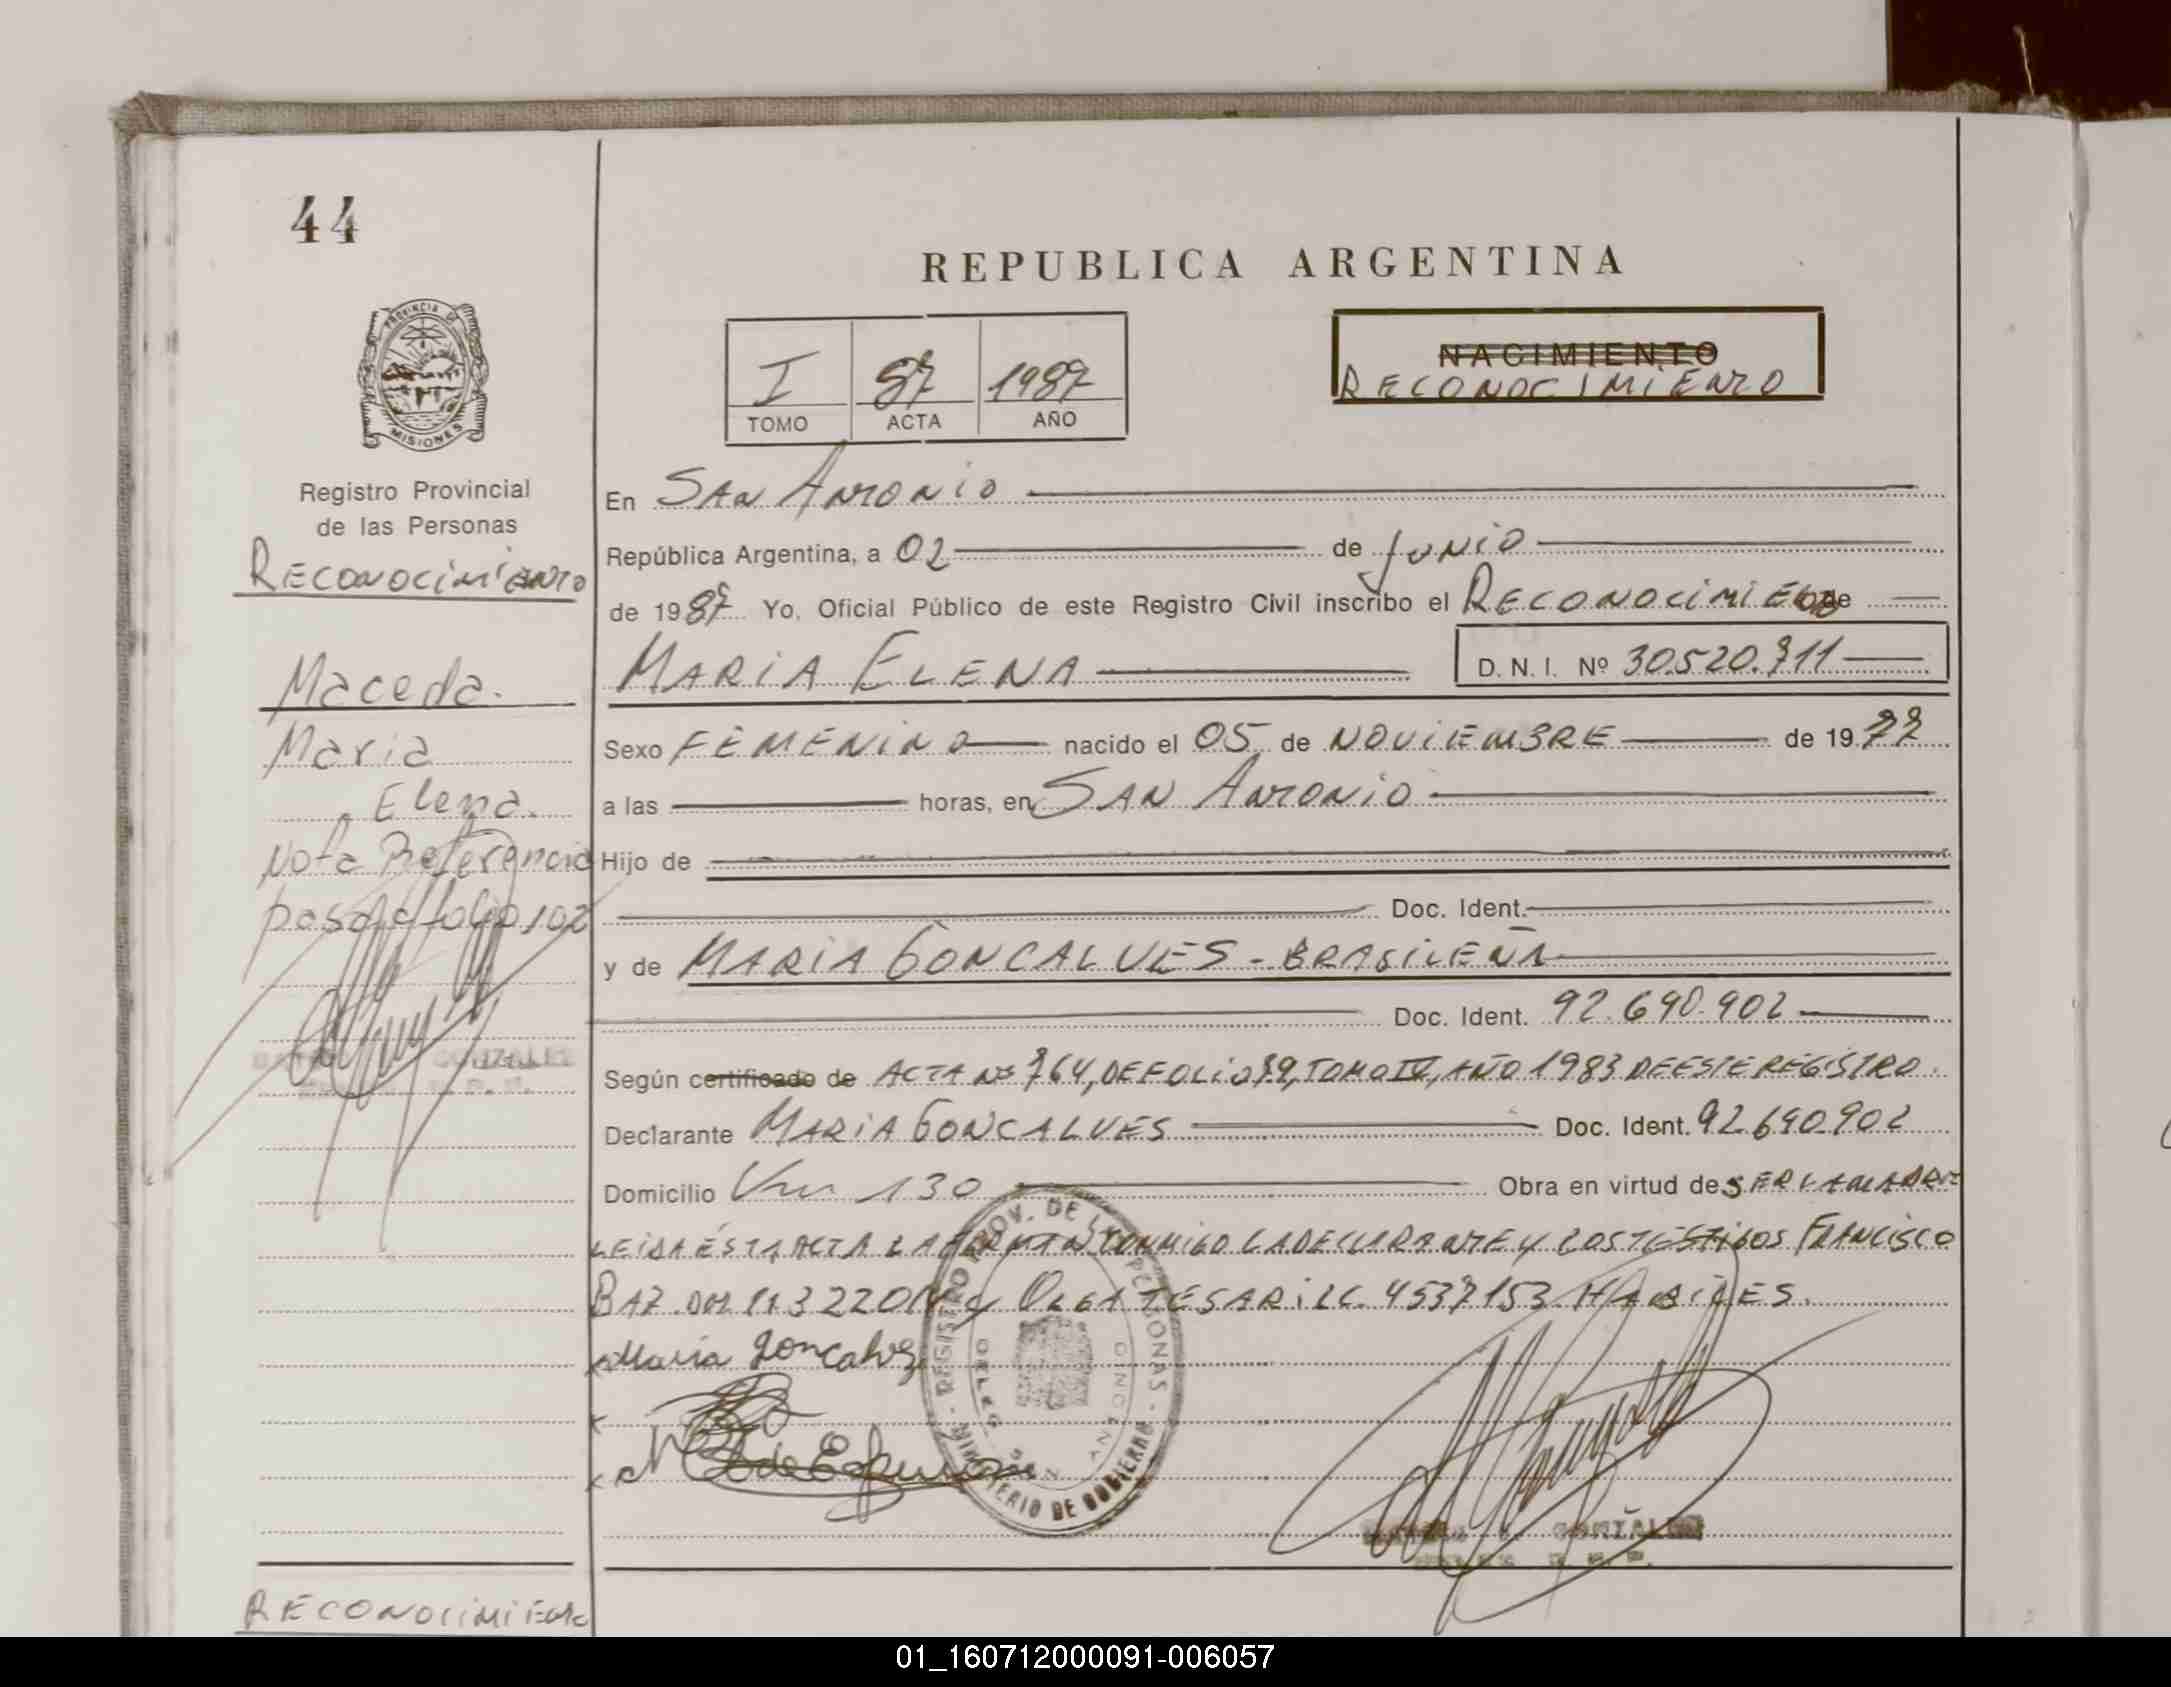 44
REPUBLICA ARGENTINA
PROVINCIA DE
MISIONES
I 87 1987
TOMO ACTA AÑO
NACIMIENTO
RECONOCIMIENTO
Registro Provincial
de las Personas
RECONOCIMIENTO
Maceda.
Maria
Elena.
Nota Referencia
pasa a folio 102
GONZALEZ
En SAN ANTONIO
República Argentina, a 02 de JUNIO
de 1987 Yo, Oficial Público de este Registro Civil inscribo el RECONOCIMIENTO de
MARIA ELENA D. N. I. Nº 30.520.711
Sexo FEMENINO nacido el 05 de NOVIEMBRE de 1977
a las horas, en SAN ANTONIO
Hijo de
Doc. Ident.
y de MARIA GONCALVES - BRASILEÑA
Doc. Ident. 92.690.902
Según certificado de ACTA Nº 764, DE FOLIO 79, TOMO IV, AÑO 1983 DE ESTE REGISTRO.
Declarante MARIA GONCALVES Doc. Ident. 92.690.902
Domicilio Km 130 Obra en virtud de SER LA MADRE
LEIDA ESTA ACTA LA FIRMAN CONMIGO LA DECLARANTE Y LOS TESTIGOS FRANCISCO
BAZ y OLGA TESARI LC. 4537153 HABILES.
x Maria Goncalves
x
x
REGISTRO PROV. DE LAS PERSONAS - MINISTERIO DE GOBIERNO -
GONZALEZ
RECONOCIMIENTO
01_160712000091-006057